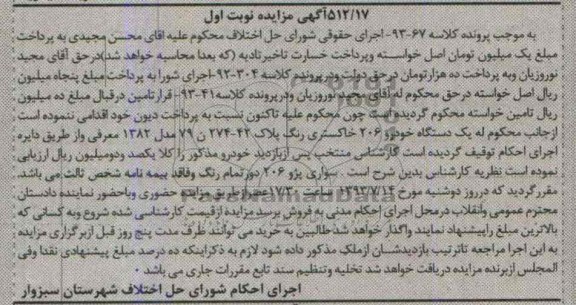 ۵۱۲/۱۷آگهی مزایده نوبت اول
به موجب پرونده کلاسه ۶۷-۹۳-اجرای حقوقی شورای حل اختلاف محکوم علیه اقای محسن مجیدی به پرداخت
مبلغ یک میلیون تومان اصل خواسته وپرداخت خسارت تاخیرتادیه (که بعدا محاسبه خواهد شد)درحق آقای مجید
نوروزیان وبه پرداخت ده هزارتومان درحق دولت ودرپرونده کلاسه ۳۰۴-۹۲-اجرای شورا به پرداخت مبلغ پنجاه میلیون
ریال اصل خواسته درحق محکوم له آقای مجید نوروزیان ودرپرونده کلاسه۴۱-۹۳-قرارتامین درقبال مبلغ ده میلیون
ریال تامین خواسته محکوم گردیده است چون محکوم علیه تاکنون نسبت به پرداخت دیون خود اقدامی ننموده است
ازجانب محکوم له یک دستگاه خودرو ۲۰۶ خاکستری رنگ پلاک ۴۲-۲۷۴ ن ۷۹ مدل ۱۳۸۲ معرفی واز طریق دایره
اجرای احکام توقیف گردیده است کارشناس منتخب پس ازبازدید خودرو مذکور را کلا یکصد ودومیلیون ریال ارزیابی
نموده است نظریه کارشناس بدین شرح است . سواری پژو ۲۰۶ دورتمام رنگ وفاقد بیمه نامه شخص ثالث می باشد.
مقررگردید که درروز دوشنبه مورخ ۱۳۹۳/۷/۱۴ ساعت ۱۷/۳۰عصر ازطریق مزایده حضوری وباحضور نماینده دادستان
محترم عمومی وانقلاب درمحل اجرای احکام مدنی به فروش برسد مزایده ازقیمت کارشناسی شده شروع وبه کسانی که
بالاترین مبلغ راپیشنهاد نمایند واگذار خواهد شد طالبین به خرید می توانند ظرف مدت پنج روز قبل ازبرگزاری مزایده
به این اجرا مراجعه تاترتیب بازدیدشان ازملک مذکور داده شود لازم به ذکراینکه ده درصد مبلغ پیشنهادی نقدا وفی
المجلس ازبرنده مزایده دریافت خواهد شد تخلیه وتنظیم سند تابع مقررات جاری می باشد .
اجرای احکام شورای حل اختلاف شهرستان سبزوار